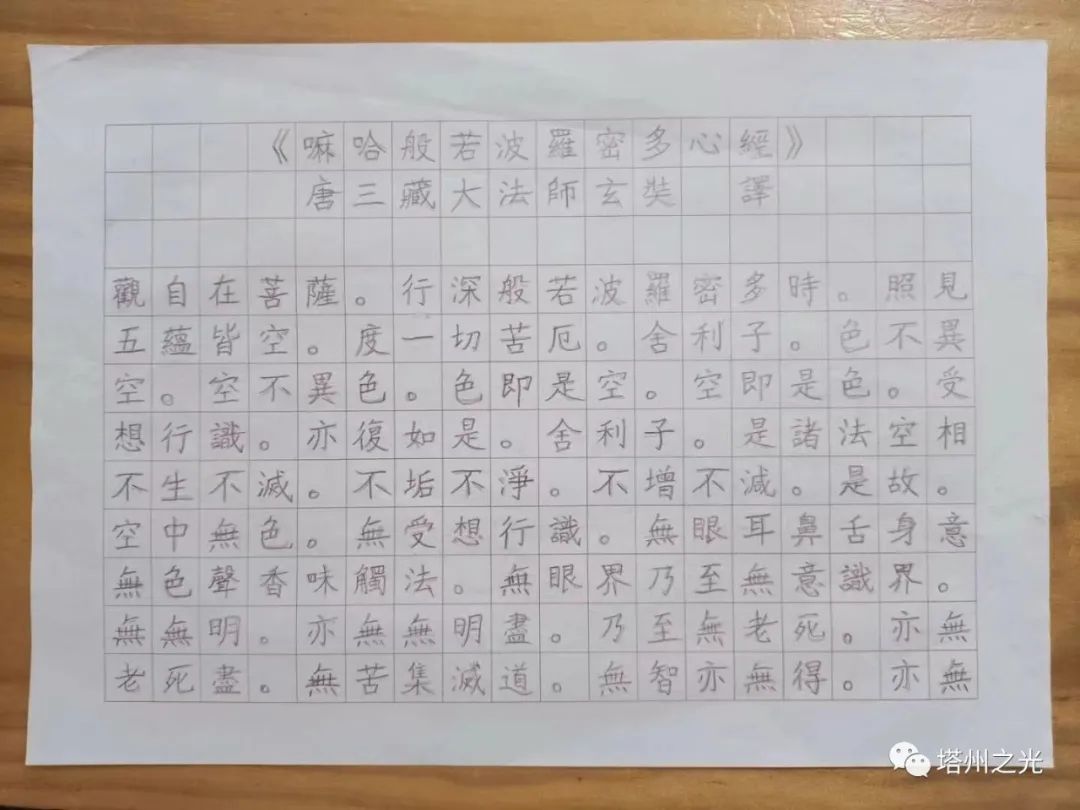 《嘛哈般若波羅密多心經》
唐三藏大法師玄奘 譯
觀自在菩薩。行深般若波羅密多時。照見
五蘊皆空。度一切苦厄。舍利子。色不異
空。空不異色。色即是空。空即是色。受
想行識。亦復如是。舍利子。是諸法空相
不生不滅。不垢不淨。不增不減。是故。
空中無色。無受想行識。無眼耳鼻舌身意
無色聲香味觸法。無眼界乃至無意識界。
無無明。亦無無明盡。乃至無老死。亦無
老死盡。無苦集滅道。無智亦無得。亦無
塔州之光